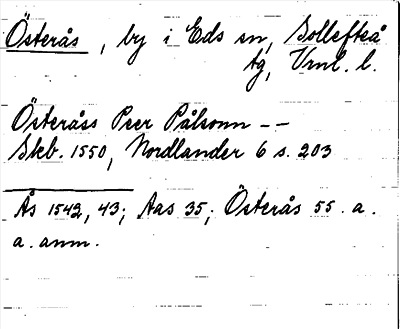 Österås, by i Eds sn, Sollefteå
tg, Vrnl. l.
Österåss Peer Pålsonn --
Skb. 1550, Nordlander 6 s. 203
Ås 1542, 43; Aas 35; Österås 55. a.
a. anm.